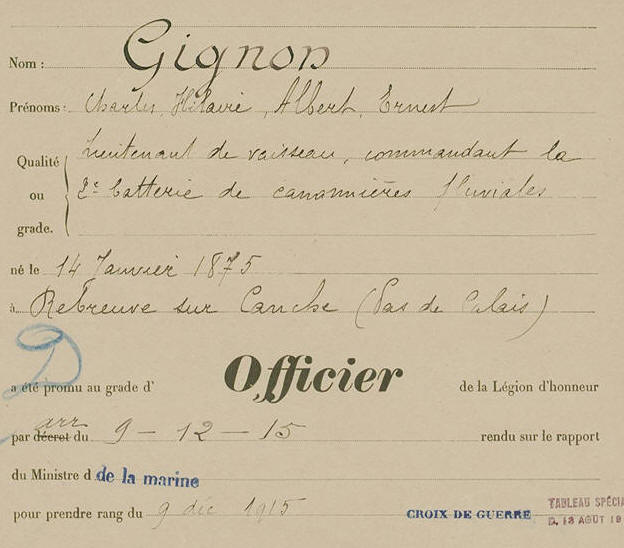 Nom : Gignon
Prénoms : Charles, Hilaire, Albert, Ernest
Qualité ou grade. Lieutenant de vaisseau, commandant la
2e batterie de canonnières fluviales
né le 14 Janvier 1875
à Rebreuve sur Canche (Pas de Calais)
D
a été promu au grade d' Officier de la Légion d'honneur
arr
par décret du 9 - 12 - 15 rendu sur le rapport
du Ministre d de la marine
pour prendre rang du 9 déc 1915
CROIX DE GUERRE
TABLEAU SPÉCIA
D. 13 AOUT 19